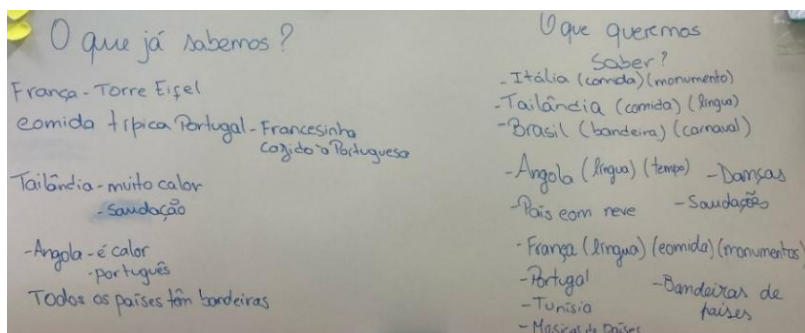 O que já sabemos?
França - Torre Eifel
comida típica Portugal - Francesinha
cozido à Portuguesa
Tailândia - muito calor
- saudação
- Angola - é calor
- português
Todos os países têm bandeiras
O que queremos
saber?
- Itália (comida) (monumento)
- Tailândia (comida) (língua)
- Brasil (bandeira) (carnaval)
- Angola (língua) (tempo) - Danças
- País com neve - Saudações
- França (língua) (comida) (monumentos)
- Portugal - Bandeiras de
- Tunísia países
- Músicas de países